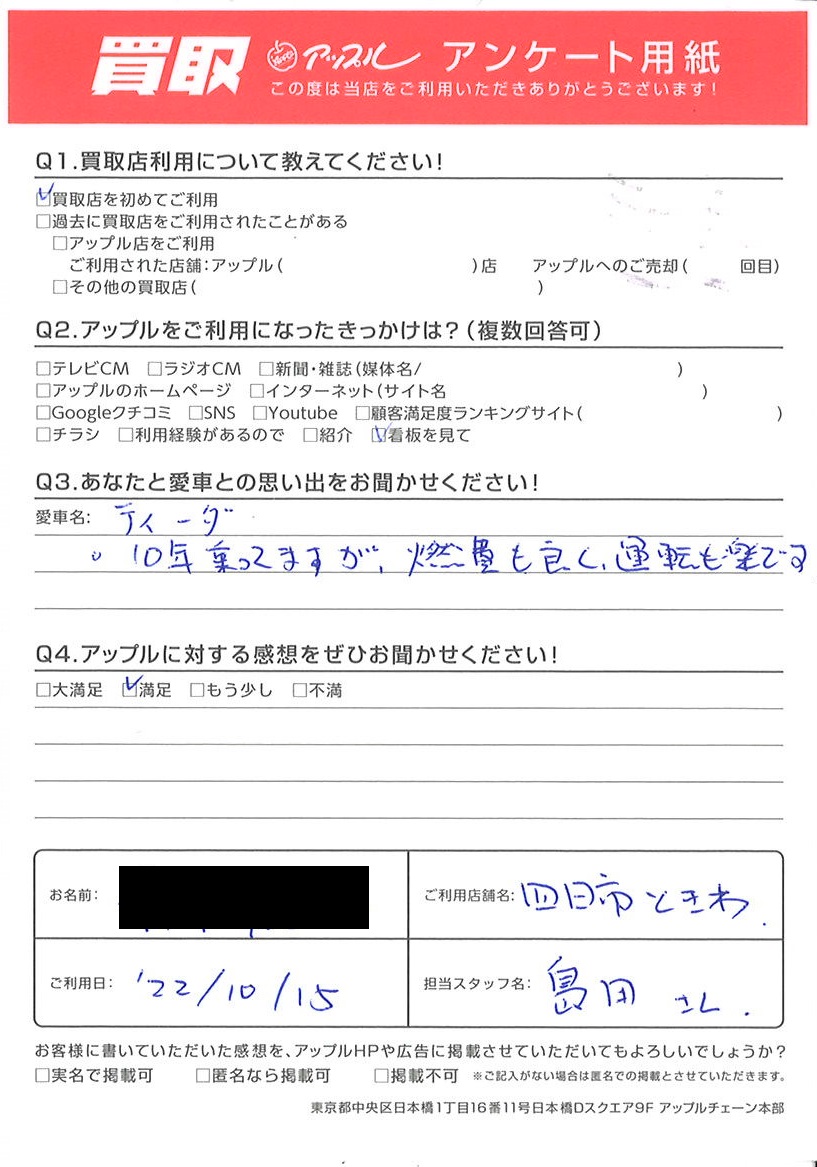 買取 アップル アンケート用紙
この度は当店をご利用いただきありがとうございます!
Q1.買取店利用について教えてください!
☑買取店を初めてご利用
□過去に買取店をご利用されたことがある
□アップル店をご利用
ご利用された店舗:アップル( )店 アップルへのご売却( 回目)
□その他の買取店( )
Q2.アップルをご利用になったきっかけは?(複数回答可)
□テレビCM □ラジオCM □新聞・雑誌(媒体名/ )
□アップルのホームページ □インターネット(サイト名 )
□Googleクチコミ □SNS □Youtube □顧客満足度ランキングサイト( )
□チラシ □利用経験があるので □紹介 ☑看板を見て
Q3.あなたと愛車との思い出をお聞かせください!
愛車名: ティーダ
。10年乗ってますが、燃費も良く、運転も楽です
Q4.アップルに対する感想をぜひお聞かせください!
□大満足 ☑満足 □もう少し □不満
お名前:
ご利用店舗名: 四日市ときわ.
ご利用日: '22/10/15
担当スタッフ名: 島田 さん.
お客様に書いていただいた感想を、アップルHPや広告に掲載させていただいてもよろしいでしょうか?
□実名で掲載可 □匿名なら掲載可 □掲載不可 ※ご記入がない場合は匿名での掲載とさせていただきます。
東京都中央区日本橋1丁目16番11号日本橋Dスクエア9F アップルチェーン本部